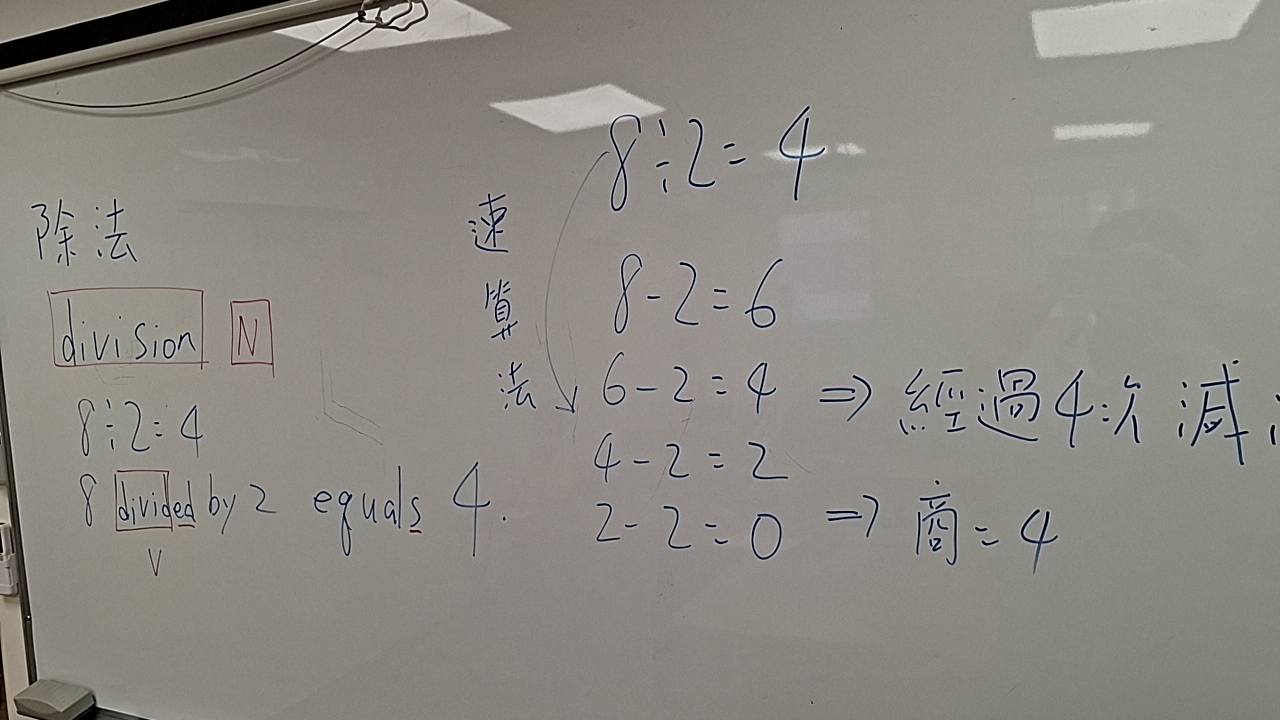 除法
division N
8÷2=4
8 divided by 2 equals 4.
V
速算法
8÷2=4
8-2=6
6-2=4 ⇒ 經過4次減
4-2=2
2-2=0 ⇒ 商=4